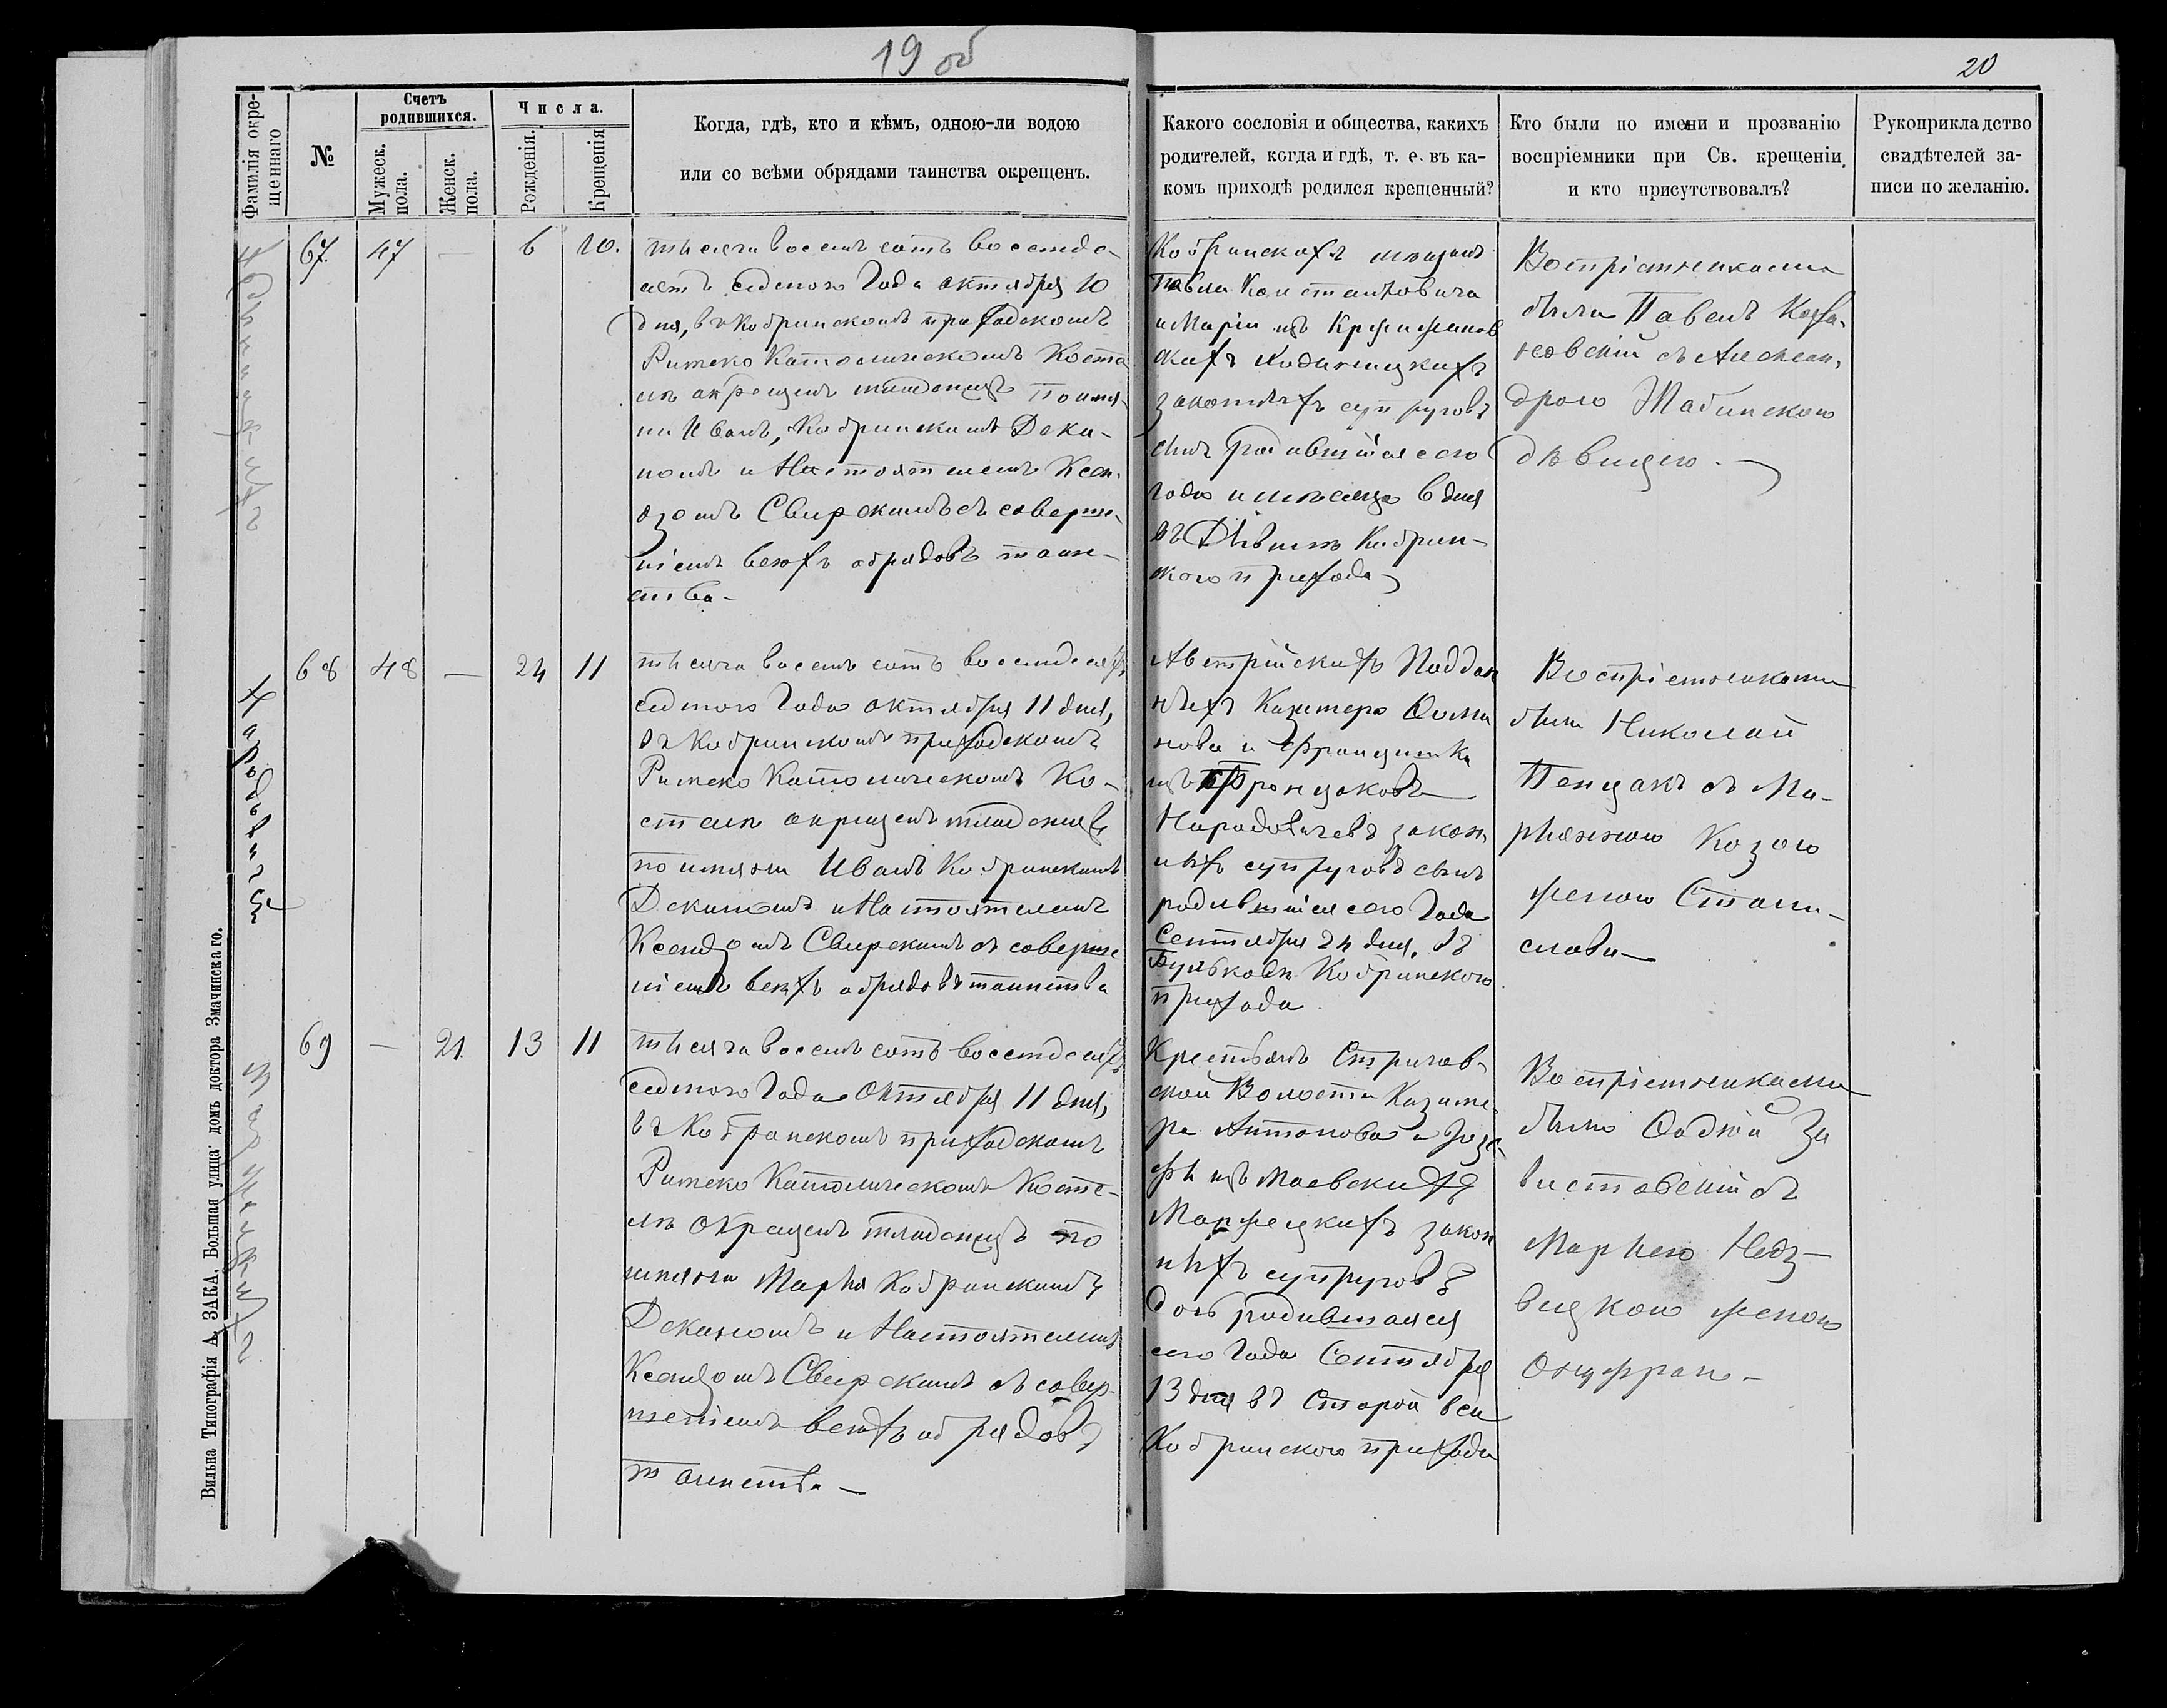 19 об
20
Фамилія окре-
щеннаго
№
Счетъ
родившихся.
Мужеск.
пола.
Женск.
пола.
Числа.
Рожденія.
Крещенія
Когда, гдѣ, кто и кѣмъ, одною-ли водою
или со всѣми обрядами таинства окрещенъ.
Какого сословія и общества, какихъ
родителей, когда и гдѣ, т. е. въ ка-
комъ приходѣ родился крещенный?
Кто были по имени и прозванію
воспріемники при Св. крещеніи
и кто присутствовалъ?
Рукоприкладство
свидѣтелей за-
писи по желанію.
67. 47 — 6 10.
тысяча восемь сотъ восемде-
сятъ седмого Года октября 10
дня, въ Кобринскомъ приходскомъ
Римско Католическомъ Косте
лѣ окрещенъ младенецъ по имя-
ни Иванъ, Кобринскимъ Дека-
номъ и Настоятелемъ Ксен-
дзомъ Свирскимъ съ соверше-
ніемъ всѣхъ обрядовъ таин-
ства —
Кобринскихъ мѣщанъ
Павла Константовича
и Маріи изъ Кржижанов
скихъ Ходыницкихъ
законныхъ супруговъ
сынъ родившійся сего
года и мѣсяца 6 дня
въ Кобрин-
ского прихода
Воспріемниками
были Павелъ
съ Алексан-
дрою Жабинскою
дѣвицею. —
68 48 — 24 11
тысяча восемь сотъ восемдесятъ
седмого Года октября 11 дня,
въ Кобринскомъ приходскомъ
Римско Католическомъ Ко-
стелѣ окрещенъ младенецъ
по имяни Иванъ Кобринскимъ
Деканомъ и Настоятелемъ
Ксендзомъ Свирскимъ съ соверше
ніемъ всѣхъ обрядовъ таинства
Нарадовичъ
Австрійскихъ Поддан
ныхъ Казимера Ѳома
нова и Францишка
изъ Францаковъ
Нарадовичевъ закон
ныхъ супруговъ сынъ
родившійся сего Года
Сентября 24 дня, въ
Бульковѣ Кобринского
прихода.
Воспріемниками
были Николай
Пенцакъ съ Ма-
рыанною Козою
женою Стани-
слова —
69 — 21. 13 11
тысяча восемь сотъ восемдесятъ
седмого Года Октября 11 дня,
въ Кобринскомъ приходскомъ
Римско Католическомъ Косте-
лѣ окрещенъ младенецъ по
имяни Марыя Кобринскимъ
Деканомъ и Настоятелемъ
Ксендзомъ Свирскимъ съ совер-
шеніемъ всѣхъ обрядовъ
таинства —
Крестьянъ Стригов-
ской Волости Казиме-
ра Антонова и Юзе-
фы изъ Маевскихъ
Маржецкихъ закон
ныхъ супруговъ
дочь родившаяся
сего Года Сентября
13 дня въ Старой вси
Кобринского прихода
Воспріемниками
были За
вистовскій съ
Марыею Недз-
вецкою женою
Онуфрія —
Вильна Типографія А. ЗАКА. Большая улица домъ доктора Змачинскаго.